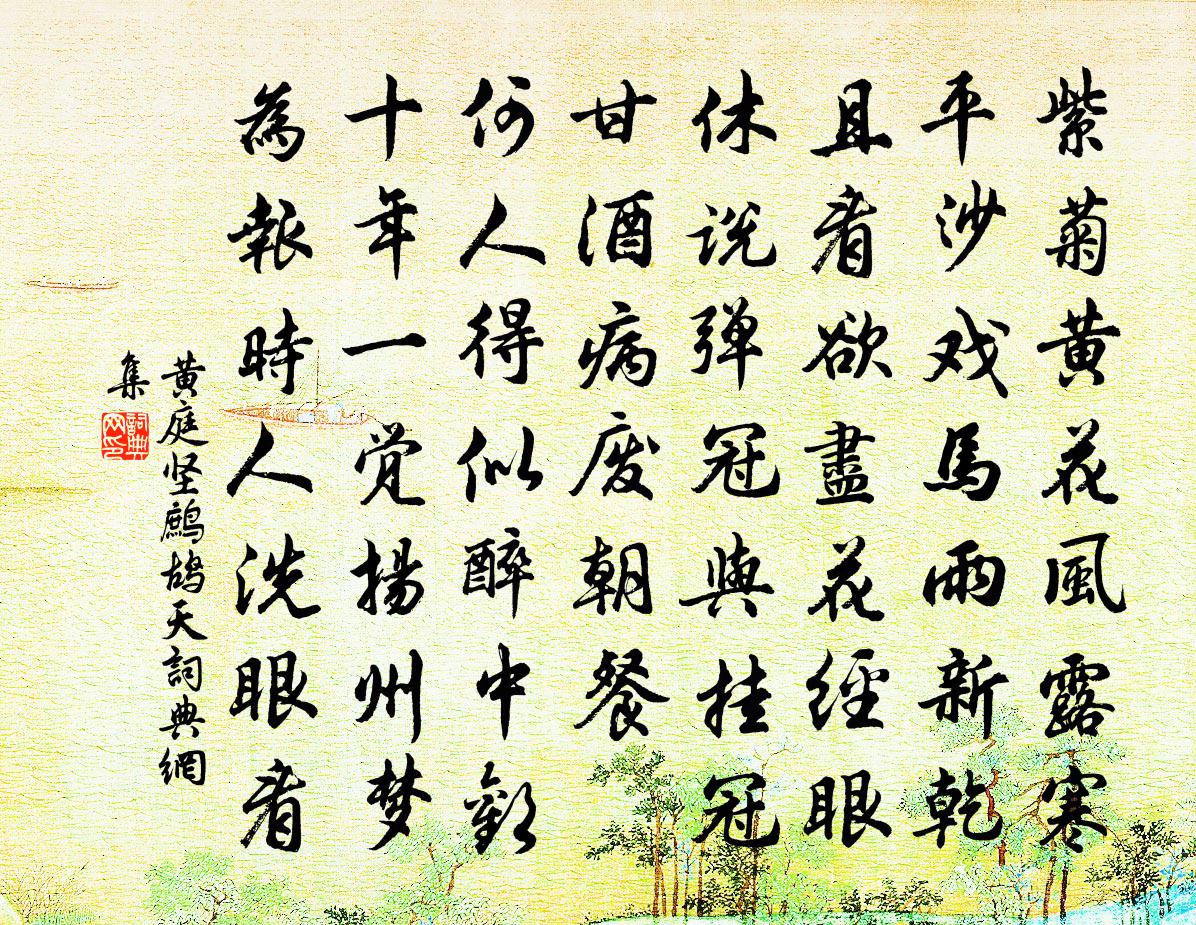 紫菊黄花風露寒
平沙戏馬雨新乾
且看欲盡花經眼
休説弹冠與挂冠
甘酒病废朝餐
何人得似醉中歡
十年一觉揚州梦
為報時人洗眼看
黄庭坚鹧鸪天詞典網
集
詞典网印